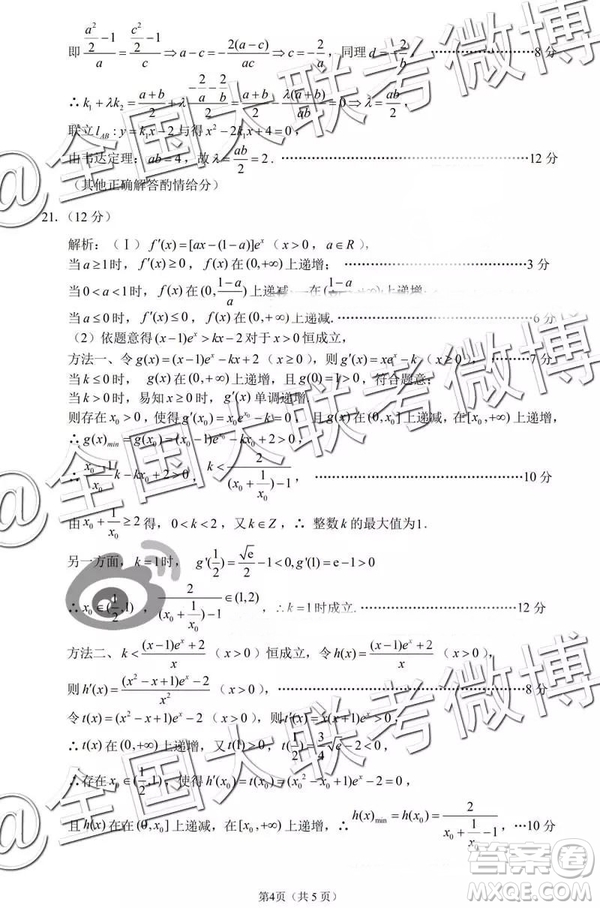 即 (a²/2-1)/a=(c²/2-1)/c⇒a-c=-2(a-c)/ac⇒c=-2/a，同理d=-2/b， ………………8分
∴k₁+λk₂=(a+b)/2+λ(-2/a-2/b)/2=(a+b)/2-λ(a+b)/ab=0⇒λ=ab/2，
联立l_AB:y=k₁x-2与得x²-2k₁x+4=0，
由韦达定理：ab=4，故λ=ab/2=2．………………12分
（其他正确解答酌情给分）
21.（12分）
解析：（Ⅰ）f′(x)=[ax-(1-a)]eˣ（x>0，a∈R），
当a≥1时，f′(x)≥0，f(x)在(0,+∞)上递增；………………3分
当0<a<1时，f(x)在(0,(1-a)/a)上递减，在((1-a)/a,+∞)上递增；
当a≤0时，f(x)在(0,+∞)上递减.………………6分
（2）依题意得(x-1)eˣ>kx-2对于x>0恒成立，
方法一、令g(x)=(x-1)eˣ-kx+2（x≥0），则g′(x)=xeˣ-k(x≥0)，………7分
当k≤0时， g(x)在(0,+∞)上递增，且g(0)=1>0，符合题意；
当k>0时，易知x≥0时，g′(x)单调递增．
则存在x₀>0，使得g′(x₀)=x₀e^x₀-k=0， 且g(x)在(0,x₀]上递减，在[x₀,+∞)上递增，
∴g(x)min=g(x₀)=(x₀-1)e^x₀-kx₀+2>0，
∴(x₀-1)/x₀ k-kx₀+2>0，k<2/((x₀+1/x₀)-1)， ………………10分
由x₀+1/x₀≥2得，0<k<2，又k∈Z，∴整数k的最大值为1．
另一方面，k=1时， g′(1/2)=√e/2-1<0,g′(1)=e-1>0
∴x₀∈(1/2,1)，2/((x₀+1/x₀)-1)∈(1,2)，∴k=1时成立.………………12分
方法二、k<((x-1)eˣ+2)/x（x>0）恒成立，令h(x)=((x-1)eˣ+2)/x（x>0），
则h′(x)=((x²-x+1)eˣ-2)/x²（x>0），………………8分
令t(x)=(x²-x+1)eˣ-2（x>0），则t′(x)=x(x+1)eˣ>0，
∴t(x)在(0,+∞)上递增，又t(1)>0，t(1/2)=3/4√e-2<0，
∴存在x₀∈(1/2,1)，使得h′(x₀)=t(x₀)=(x₀²-x₀+1)e^x₀-2=0，
且h(x)在(0,x₀]上递减，在[x₀,+∞)上递增，∴h(x)min=h(x₀)=2/(x₀+1/x₀-1)，…10分
第4页（共5页）
@全国大联考微博
@全国大联考微博
@全国大联考微博
答案卷
MXQE.COM